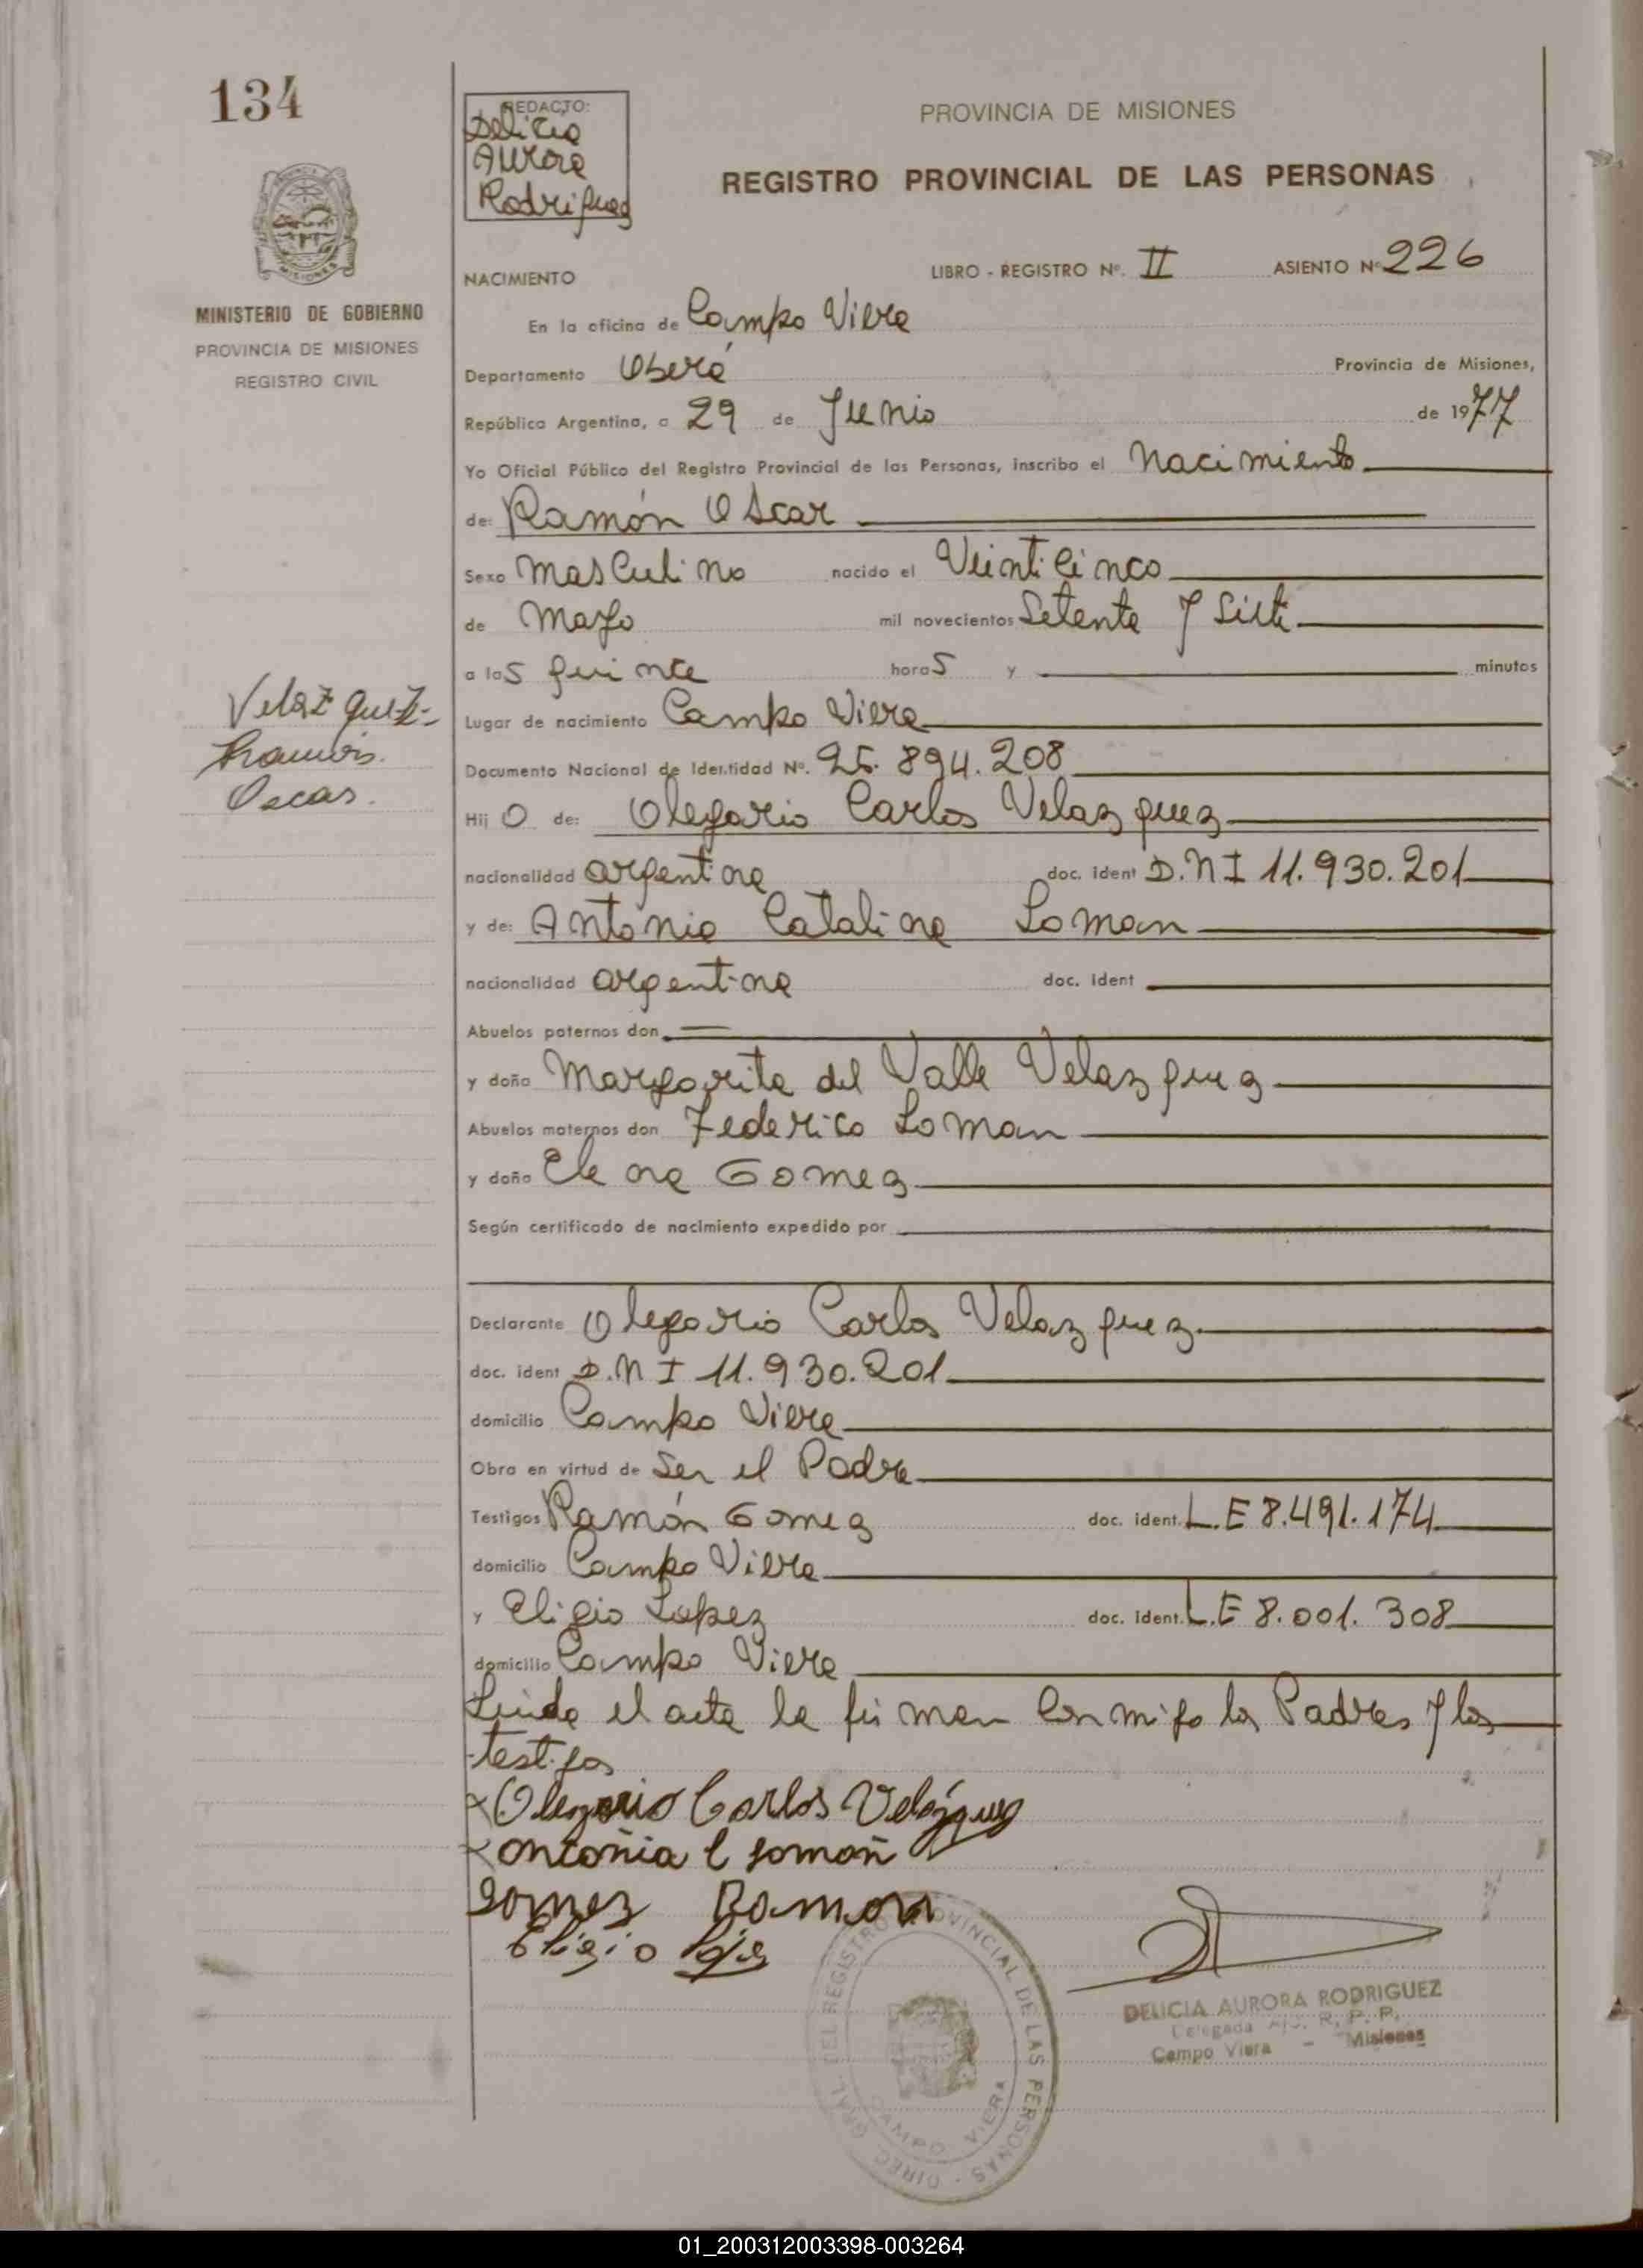 134
REDACTO:
Delicia
Aurora
Rodriguez
PROVINCIA DE MISIONES
REGISTRO PROVINCIAL DE LAS PERSONAS
MISIONES
MINISTERIO DE GOBIERNO
PROVINCIA DE MISIONES
REGISTRO CIVIL
NACIMIENTO LIBRO - REGISTRO Nº. II ASIENTO Nº 226
En la oficina de Campo Viera
Departamento Oberá Provincia de Misiones,
República Argentina, a 29 de Junio de 1977
Yo Oficial Público del Registro Provincial de las Personas, inscribo el Nacimiento
de: Ramón Oscar
Sexo Masculino nacido el Veinticinco
de Mayo mil novecientos Setenta y Siete
a las quince horas y minutos
Lugar de nacimiento Campo Viera
Velazquez-
Ramón
Oscar.
Documento Nacional de Identidad Nº. 25.894.208
Hijo de: Olegario Carlos Velazquez
nacionalidad argentina doc. ident D.N.I 11.930.201
y de: Antonia Catalina Loman
nacionalidad argentina doc. ident
Abuelos paternos don
y doña Margarita del Valle Velazquez
Abuelos maternos don Federico Loman
y doña Elena Gomez
Según certificado de nacimiento expedido por
Declarante Olegario Carlos Velazquez
doc. ident D.N I 11.930.201
domicilio Campo Viera
Obra en virtud de Ser el Padre
Testigos Ramón Gomez doc. ident. L.E 8.491.174
domicilio Campo Viera
y Eligio Lopez doc. ident. L.E 8.001.308
domicilio Campo Viera
Leida el acta la firman conmigo los Padres y los
testigos
x Olegario Carlos Velázquez
x antonia C loman
Gomez Ramon
Eligio
DIREC. GRAL. DEL REGISTRO PROVINCIAL DE LAS PERSONAS
CAMPO VIERA
DELICIA AURORA RODRIGUEZ
Delegada R. P. P.
Campo Viera - Misiones
01_200312003398-003264